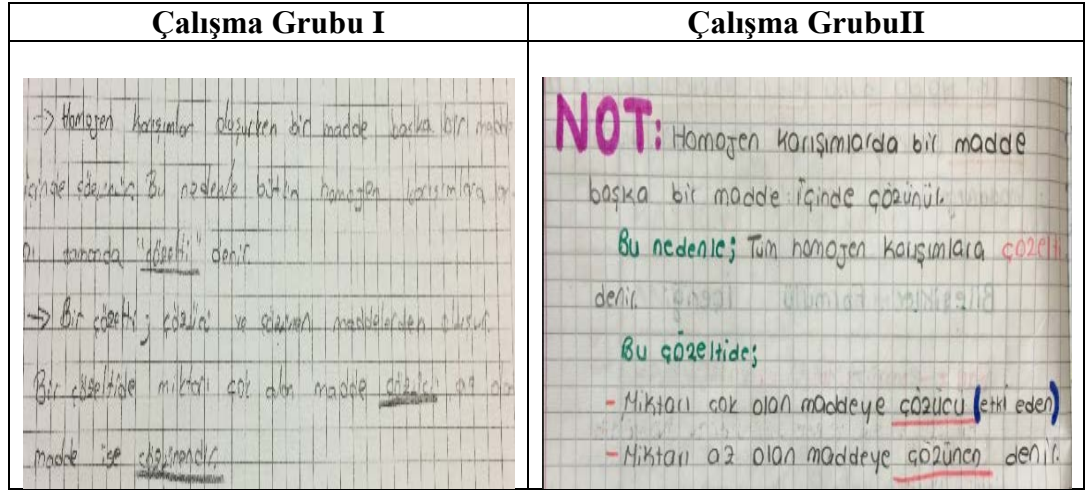 Çalışma Grubu I
Çalışma GrubuII
→ Homojen karışımlar oluşurken bir madde başka bir madde
içinde çözünür. Bu nedenle bütün homojen karışımlara
zamanda "çözelti" denir.
→ Bir çözelti; çözücü ve çözünen maddelerden oluşur.
Bir çözeltide miktarı çok olan madde çözücü az olan
madde ise çözünendir.
NOT: Homojen karışımlarda bir madde
başka bir madde içinde çözünür.
Bu nedenle; Tüm homojen karışımlara çözelti
denir.
Bu çözeltide;
- Miktarı çok olan maddeye çözücü (etki eden)
- Miktarı az olan maddeye çözünen denir.